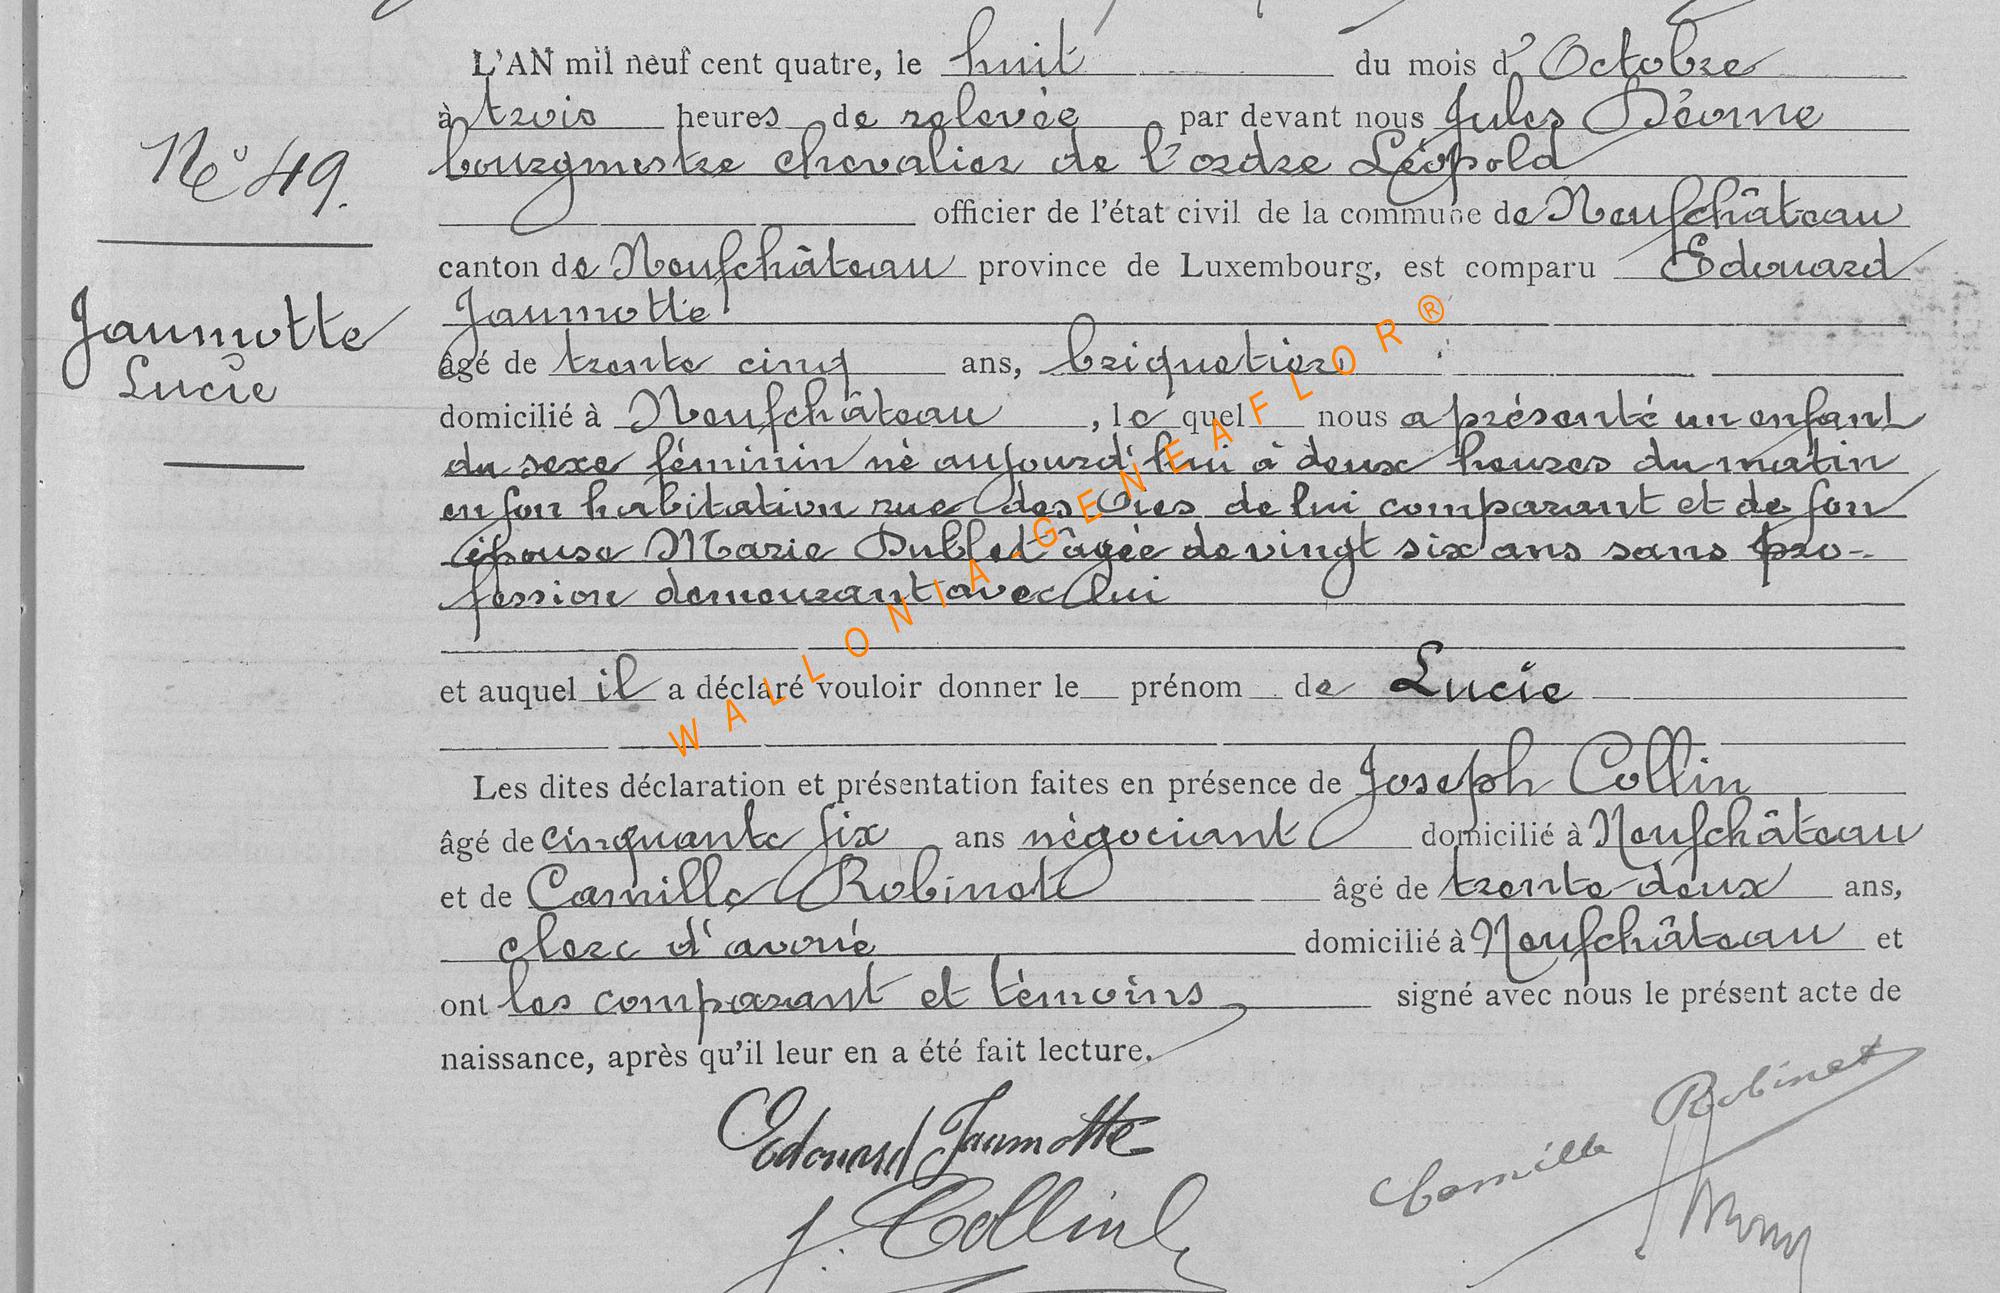 L'AN mil neuf cent quatre, le huit du mois d'Octobre
à trois heures de relevée par devant nous Jules
bourgmestre chevalier de l'ordre Léopold
N° 49.
officier de l'état civil de la commune de Neufchâteau
canton de Neufchâteau province de Luxembourg, est comparu Edouard
Jaumotte
Jaumotte
Lucie
âgé de trente cinq ans, briquetier
domicilié à Neufchâteau, lequel nous a présenté un enfant
du sexe féminin né aujourd'hui à deux heures du matin
en son habitation rue des Oies de lui comparant et de son
épouse Marie Dublet âgée de vingt six ans sans pro-
fession demeurant avec lui
et auquel il a déclaré vouloir donner le prénom de Lucie
WALLONIA-GENEAFLOR®
Les dites déclaration et présentation faites en présence de Joseph Collin
âgé de cinquante six ans négociant domicilié à Neufchâteau
et de Camille Robinet âgé de trente deux ans,
clerc d'avoué domicilié à Neufchâteau et
ont les comparant et témoins signé avec nous le présent acte de
naissance, après qu'il leur en a été fait lecture.
Edouard Jaumotte
Camille Robinet
J. Collin